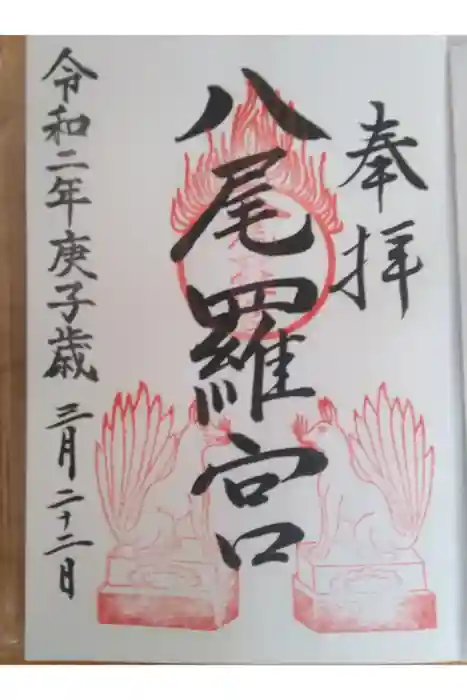 奉拝
八尾羅宮
令和二年庚子歳 三月二十二日